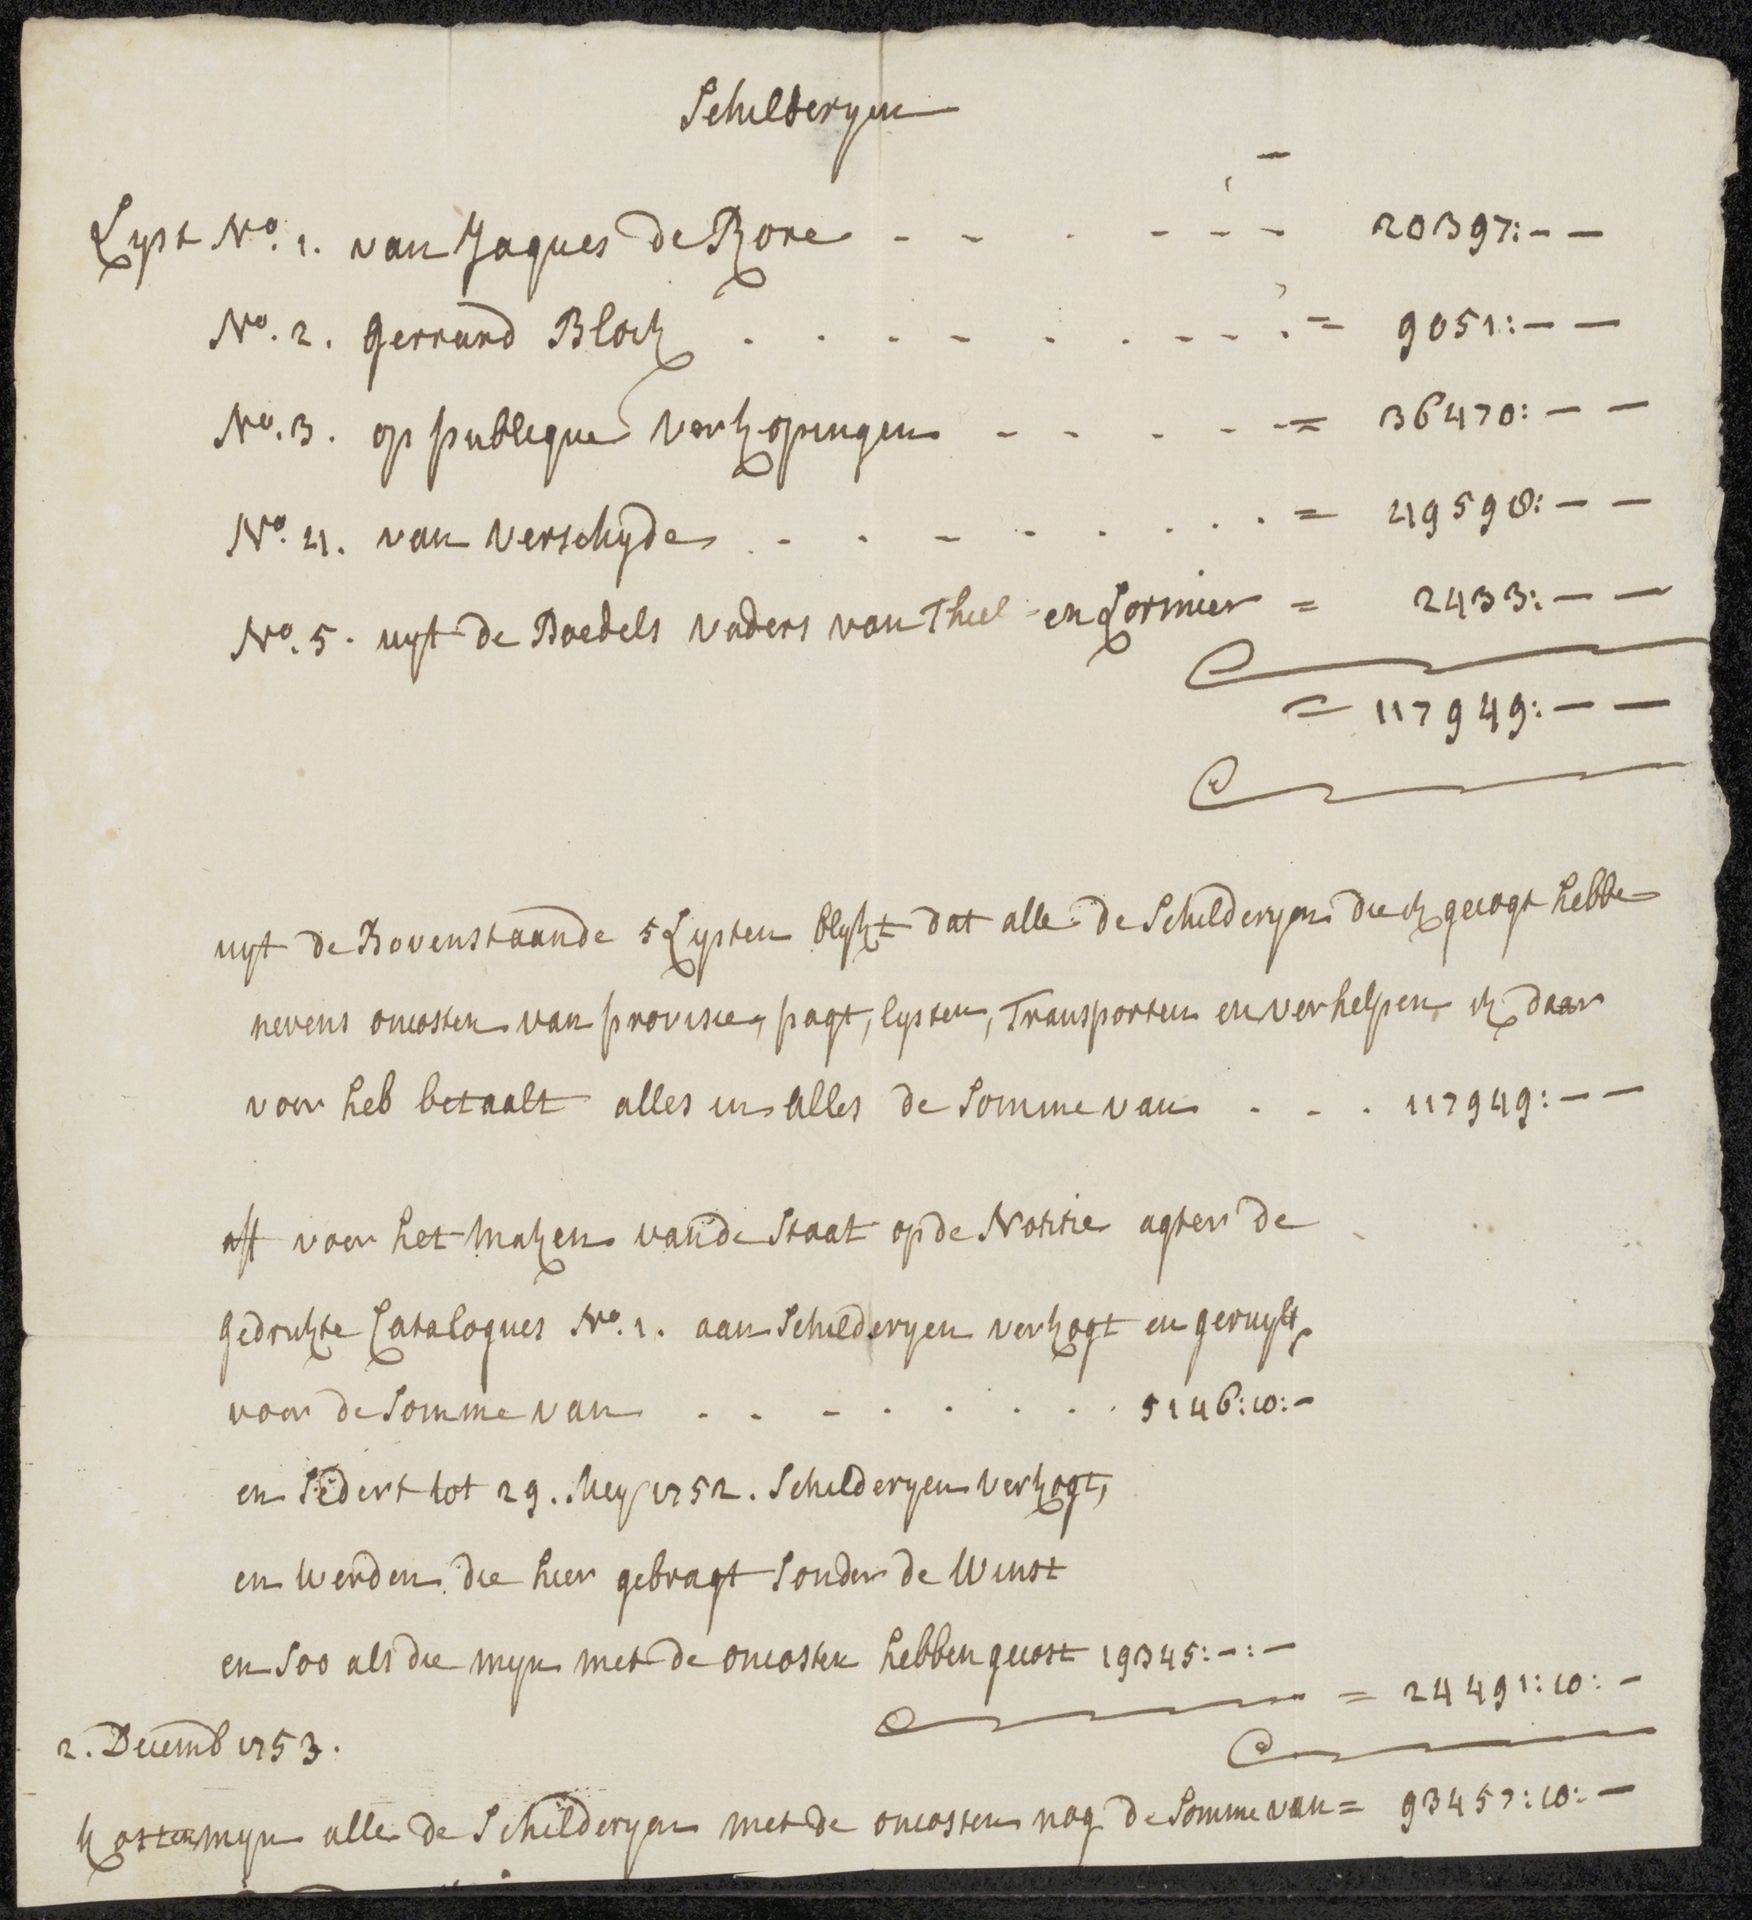 Schilderyen
Lyst No. 1. van Jaques de Rore - - - - - - 20397:- -
No. 2. Gerrard Block . . . . - . . - - - . = 9051:- -
No. 3. op publique verkopingen - - - - - = 36470:- -
No. 4. van verschyde . - . - - . . . . . = 49598:- -
No. 5. uyt de Boedels vaders van Thiel en Lormier = 2433:- -
= 117949:- -
uyt de Bovenstaande 5 Lysten blykt dat alle de Schilderyen die ik gecogt hebbe
nevens oncosten van provisie, pagt, lysten, Transporten en verhelpen, ik daar
voor heb betaalt alles in alles de Somme van . - . 117949:- -
aff voor het maken vande Staat op de Notitie agter de
gedrukte Catalogues No. 1. aan Schilderyen verkogt en geruylt,
voor de Somme van . . - . . . . . 5146:10:-
en Sedert tot 29. Mey 1752. Schilderyen verkogt,
en werden die hier gebragt Sonder de Winst
en Soo als die myn met de oncosten hebben gecost 19345:-:-
= 24491:10:-
2. Decemb 1753.
kosten myn alle de Schilderyen met de oncosten nog de Somme van = 93457:10:-